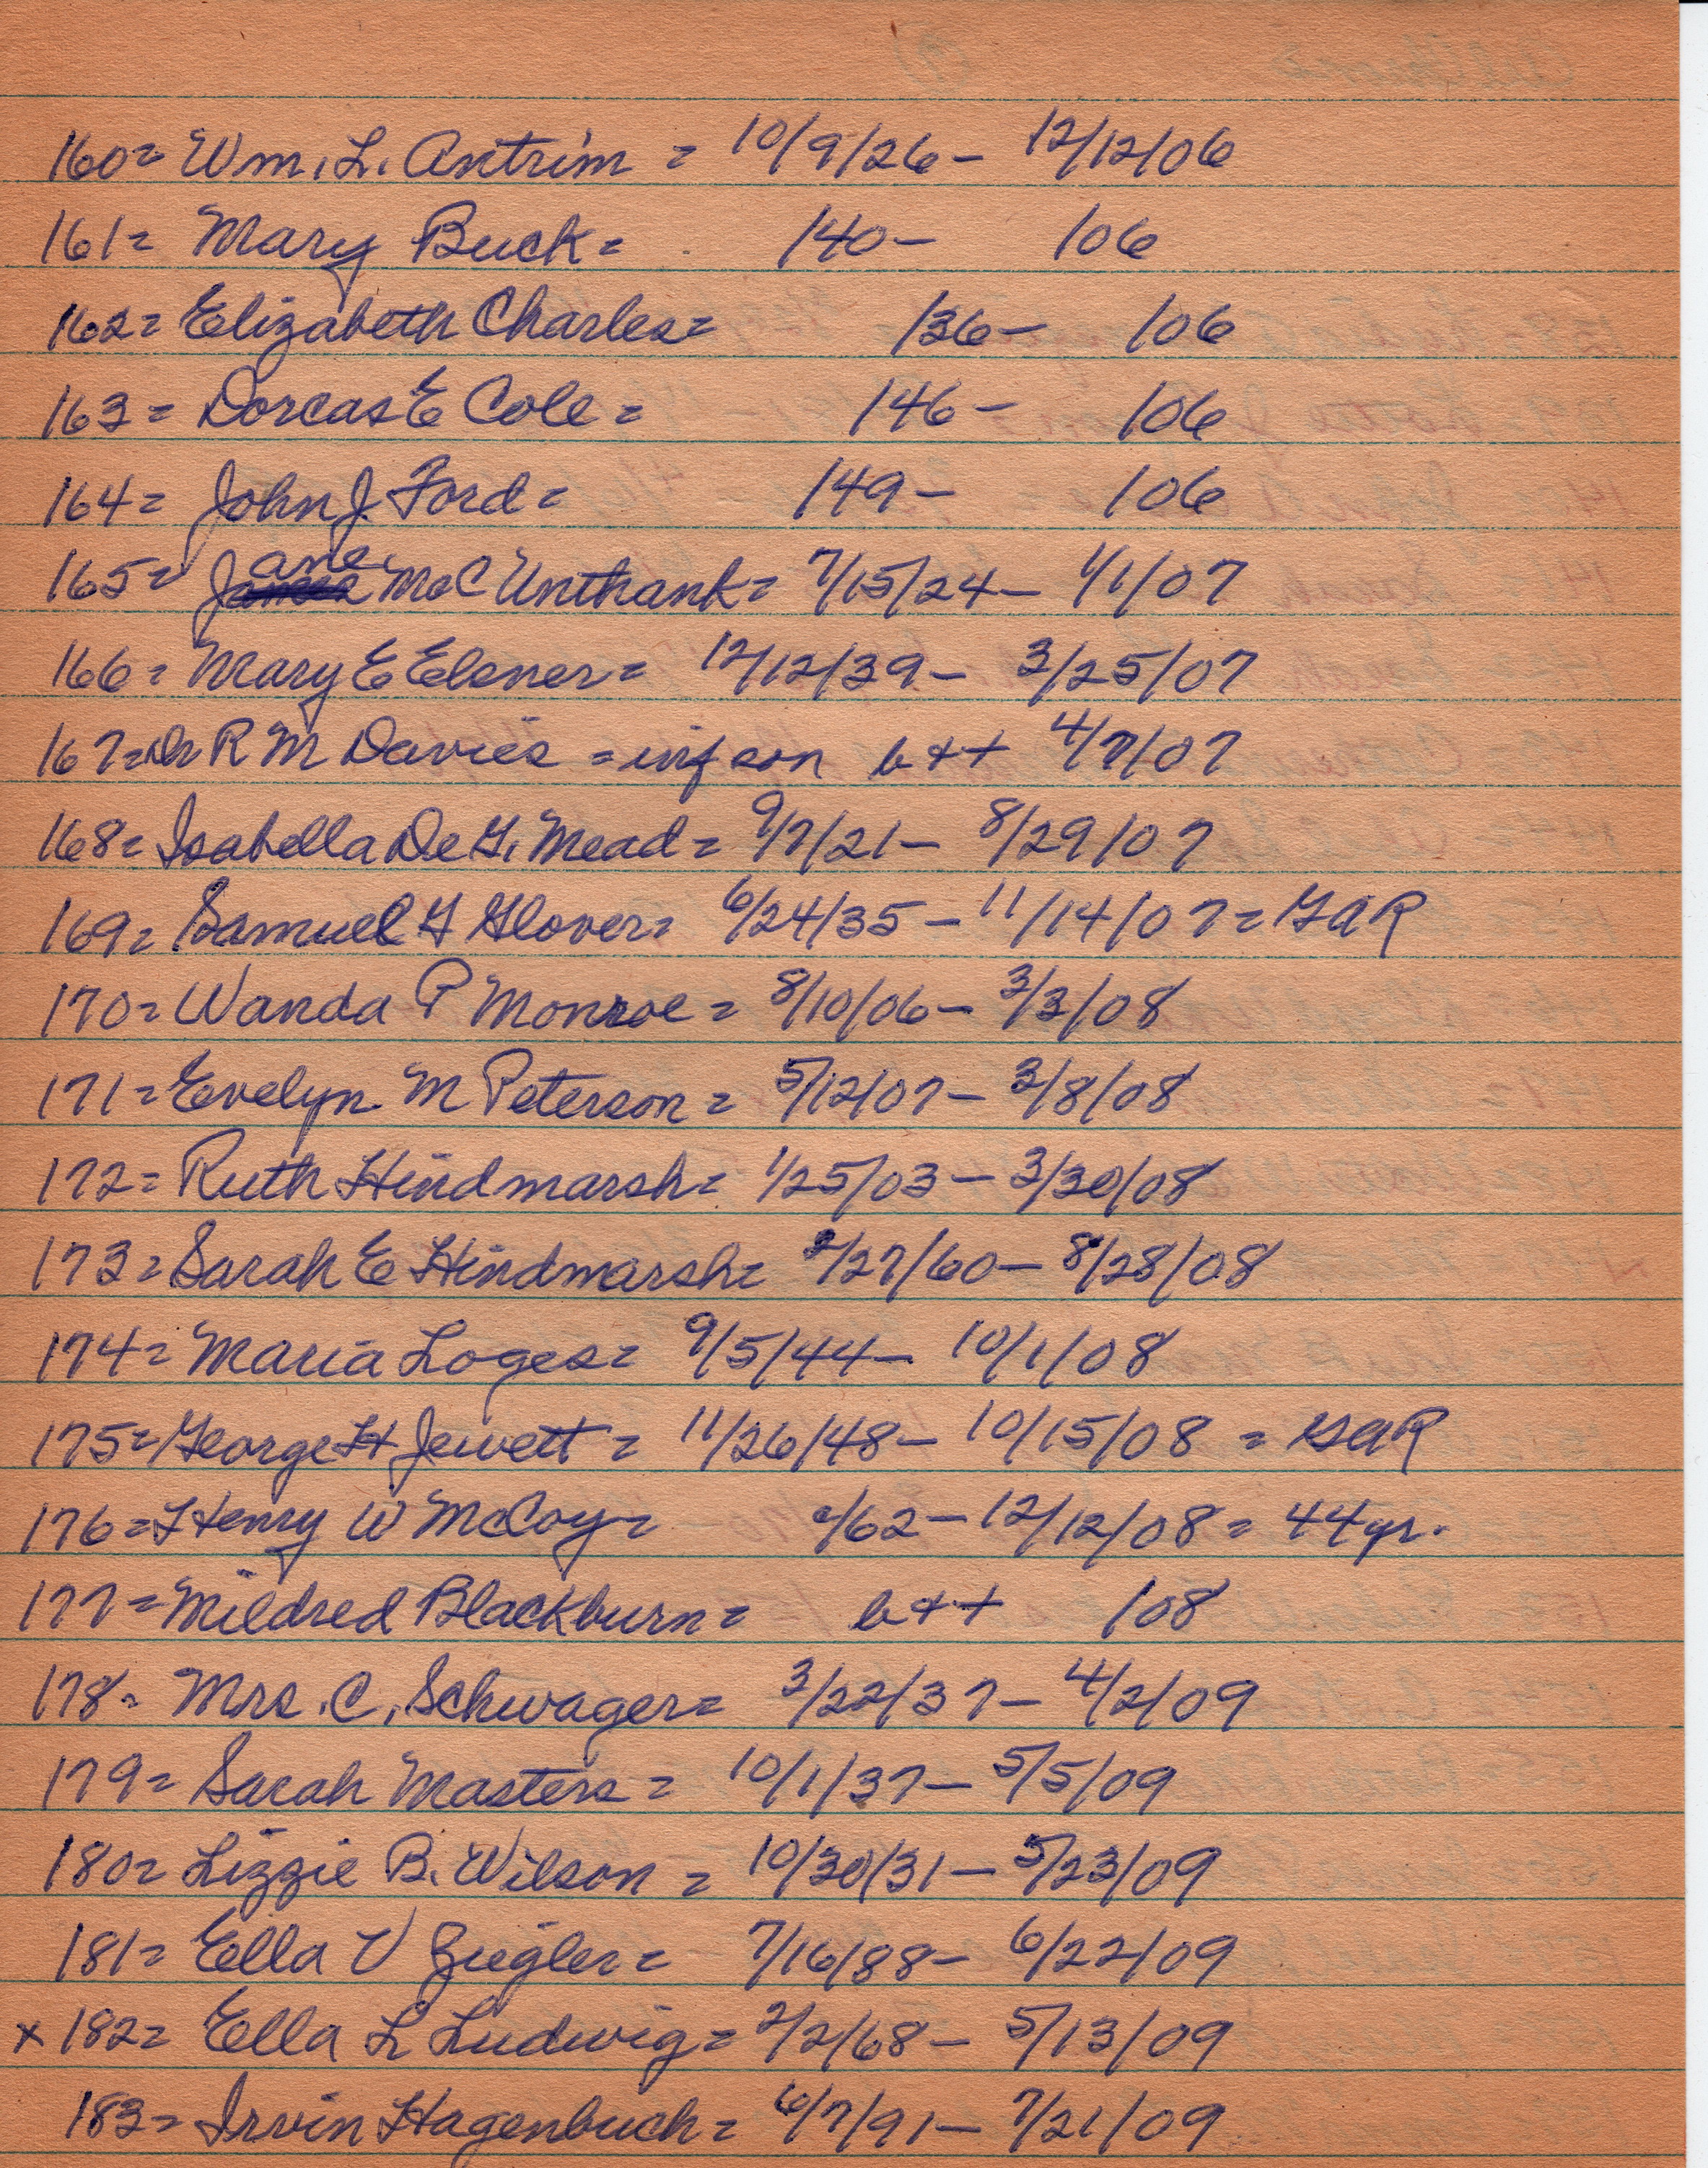 160= Wm. L. Antrim = 10/9/26 - 12/12/06
161= Mary Buck = /40- /06
162= Elizabeth Charles= /36- /06
163= Dorcas E Cole = /46- /06
164= John J. Ford = /49- /06
165= Jane McC Unthank= 7/15/24- 1/1/07
166= Mary E Elsner= 12/12/39- 3/25/07
167=Dr R M Davies =inf son b++ 4/7/07
168= Isabella De G. Mead= 9/7/21- 8/29/07
169= Samuel G Glover= 6/24/35-11/14/07= GAR
170= Wanda P Monroe= 8/10/06- 3/3/08
171=Evelyn M Peterson= 5/12/07- 3/8/08
172= Ruth Hindmarsh= 1/25/03-3/30/08
173=Sarah E Hindmarsh= /27/60-8/28/08
174= Maria Loges= 9/5/44- 10/1/08
175=George H Jewett = 11/26/48- 10/15/08 = GAR
176=Henry W McCoy= /62-12/12/08= 44yr.
177=Mildred Blackburn= b++ /08
178= Mrs. C. Schwager= 3/22/37- 4/2/09
179= Sarah Masters= 10/1/37- 5/5/09
180= Lizzie B. Wilson = 10/30/31- 5/23/09
181= Ella V Ziegler= 7/16/88- 6/22/09
x 182= Ella L Ludwig= 2/2/68- 5/13/09
183= Irvin Hagenbuch= 6/7/91- 7/21/09